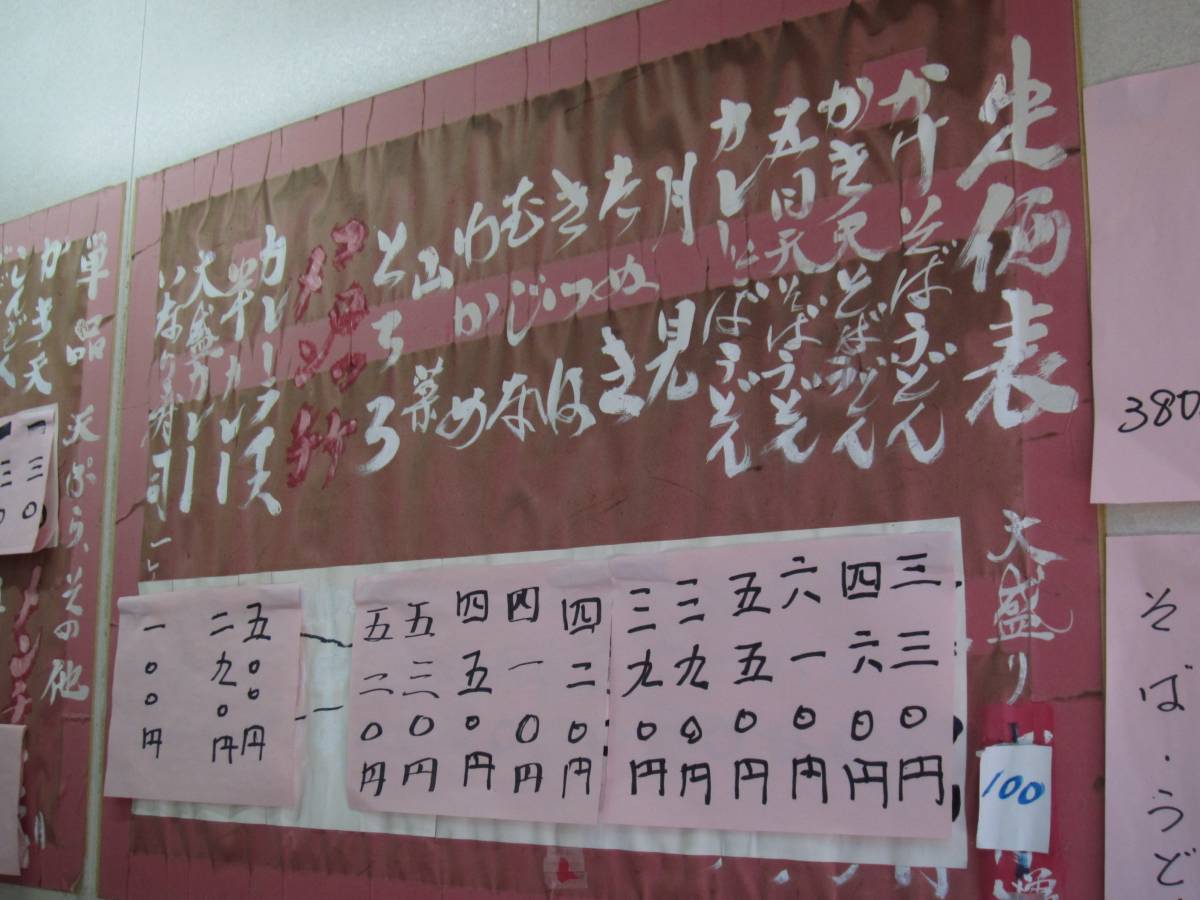 380
そば・うど
定価表
大盛り
100
増
かけそばうどん
かき天そばうどん
五目天そばうどん
カレーそばうどん
月見
たぬき
きつね
むじな
わかめ
山菜
とろろ
カレーライス
半カレー
大盛カレー
いなり寿司
三三〇円
四六〇円
六一〇円
五五〇円
三九〇円
三九〇円
四二〇円
四一〇円
四五〇円
五三〇円
五二〇円
五〇〇円
二九〇円
一〇〇円
単品 天ぷら、その他
かき天
一三〇